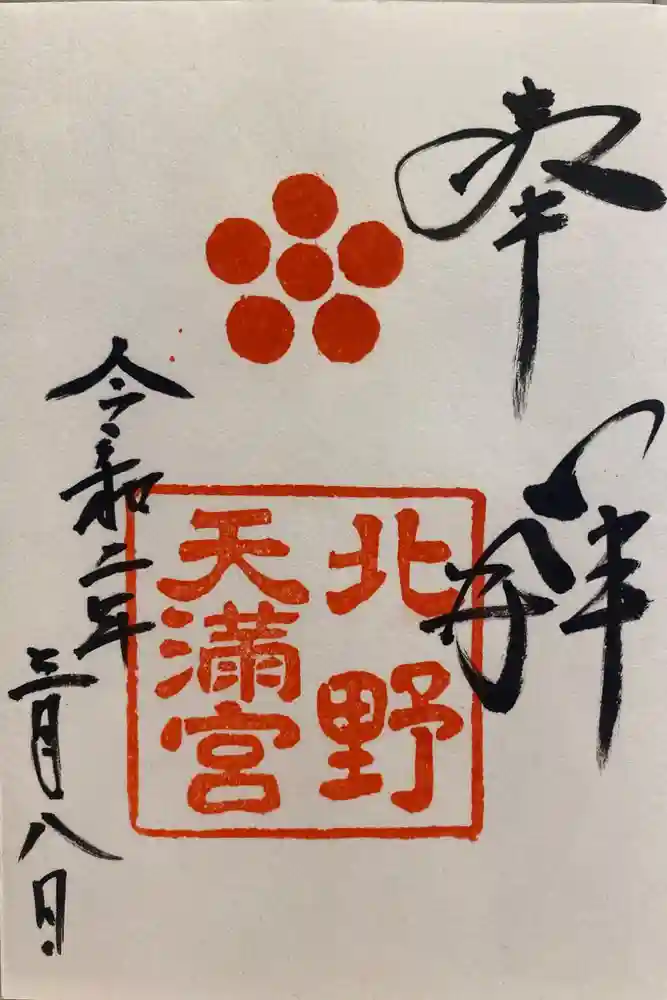 奉拝
北野
天満宮
令和二年
三月八日